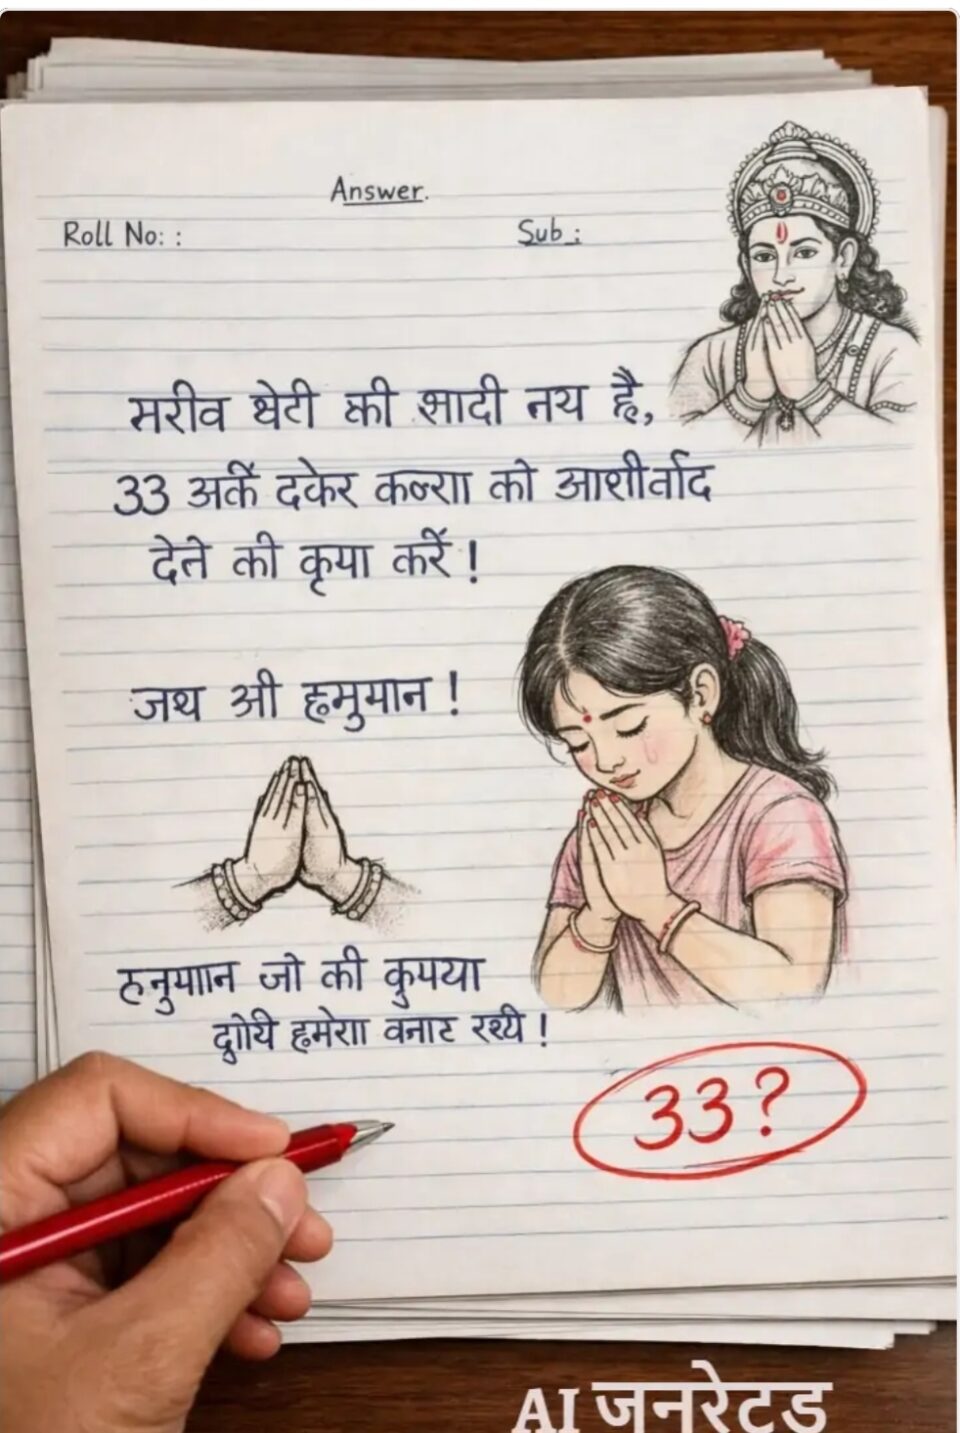 Answer.
Roll No: :
Sub :
मरीव थेटी की सादी नय है,
33 अर्के दकेर कन्राा को आशीर्वाद
देने की कृया करें !
जथ श्री हमुमान !
हनुमाान जो की कुपया
हमेराा वनाट रश्यी !
33?
AI जनरेटड